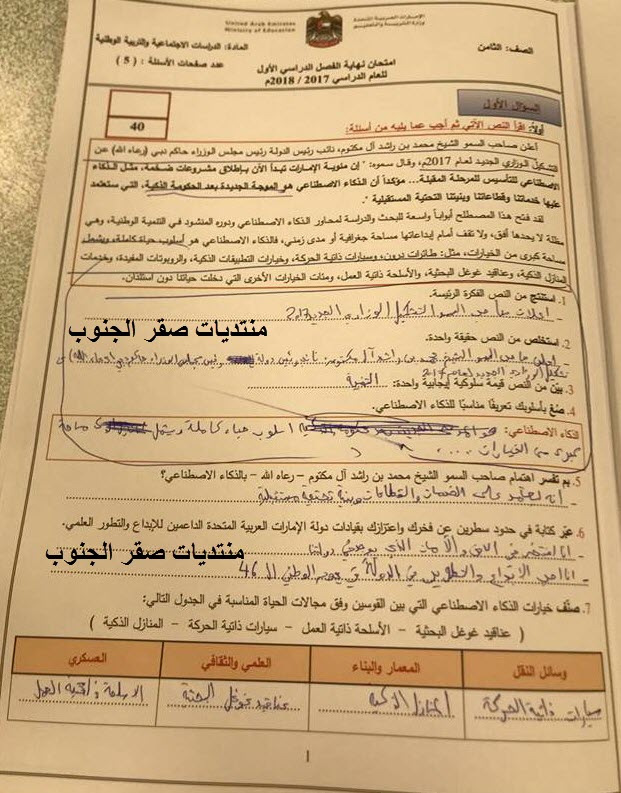 United Arab Emirates
Ministry of Education
الإمارات العربية المتحدة
وزارة التربية والتعليم
الصف: الثامن
المادة: الدراسات الاجتماعية والتربية الوطنية
امتحان نهاية الفصل الدراسي الأول
عدد صفحات الأسئلة : ( 5 )
للعام الدراسي 2017 / 2018م
السؤال الأول
أولاً: اقرأ النص الآتي ثم أجب عما يليه من أسئلة:
40
أعلن صاحب السمو الشيخ محمد بن راشد آل مكتوم، نائب رئيس الدولة رئيس مجلس الوزراء حاكم دبي (رعاه الله) عن
التشكيل الوزاري الجديد لعام 2017م، وقال سموه: " إن مئوية الإمارات تبدأ الآن بإطلاق مشروعات ضخمة، مثل الذكاء
الاصطناعي للتأسيس للمرحلة المقبلة... مؤكداً أن الذكاء الاصطناعي هو الموجة الجديدة بعد الحكومة الذكية، التي ستعتمد
عليها خدماتنا وقطاعاتنا وبنيتنا التحتية المستقبلية "
لقد فتح هذا المصطلح أبواباً واسعة للبحث والدراسة لمحاور الذكاء الاصطناعي ودوره المنشود في التنمية الوطنية، وهي
مظلة لا يحدها أفق، ولا تقف أمام إبداعاتها مساحة جغرافية أو مدى زمني، فالذكاء الاصطناعي هو أسلوب حياة كاملة، ويشمل
مساحة كبرى من الخيارات، مثل: طائرات درون، وسيارات ذاتية الحركة، وخيارات التطبيقات الذكية، والروبوتات المفيدة، وخدمات
المنازل الذكية، وعناقيد غوغل البحثية، والأسلحة ذاتية العمل، ومئات الخيارات الأخرى التي دخلت حياتنا دون استئذان.
1. استنتج من النص الفكرة الرئيسة.
منتديات صقر الجنوب
2. استخلص من النص حقيقة واحدة.
3. بيّن من النص قيمة سلوكية إيجابية واحدة:
4. صُغ بأسلوبك تعريفًا مناسبًا للذكاء الاصطناعي.
الذكاء الاصطناعي: اسلوب حياة كاملة ويشمل مساحة
كبرى من الخيارات ....
5. بم تفسر اهتمام صاحب السمو الشيخ محمد بن راشد آل مكتوم – رعاه الله – بالذكاء الاصطناعي؟
6. عبّر كتابة في حدود سطرين عن فخرك واعتزازك بقيادات دولة الإمارات العربية المتحدة الداعمين للإبداع والتطور العلمي.
منتديات صقر الجنوب
7. صنّف خيارات الذكاء الاصطناعي التي بين القوسين وفق مجالات الحياة المناسبة في الجدول التالي:
( عناقيد غوغل البحثية – الأسلحة ذاتية العمل – سيارات ذاتية الحركة – المنازل الذكية )
وسائل النقل المعمار والبناء العلمي والثقافي العسكري
سيارات ذاتية الحركة المنازل الذكية عناقيد غوغل البحثية الاسلحة ذاتية العمل
1